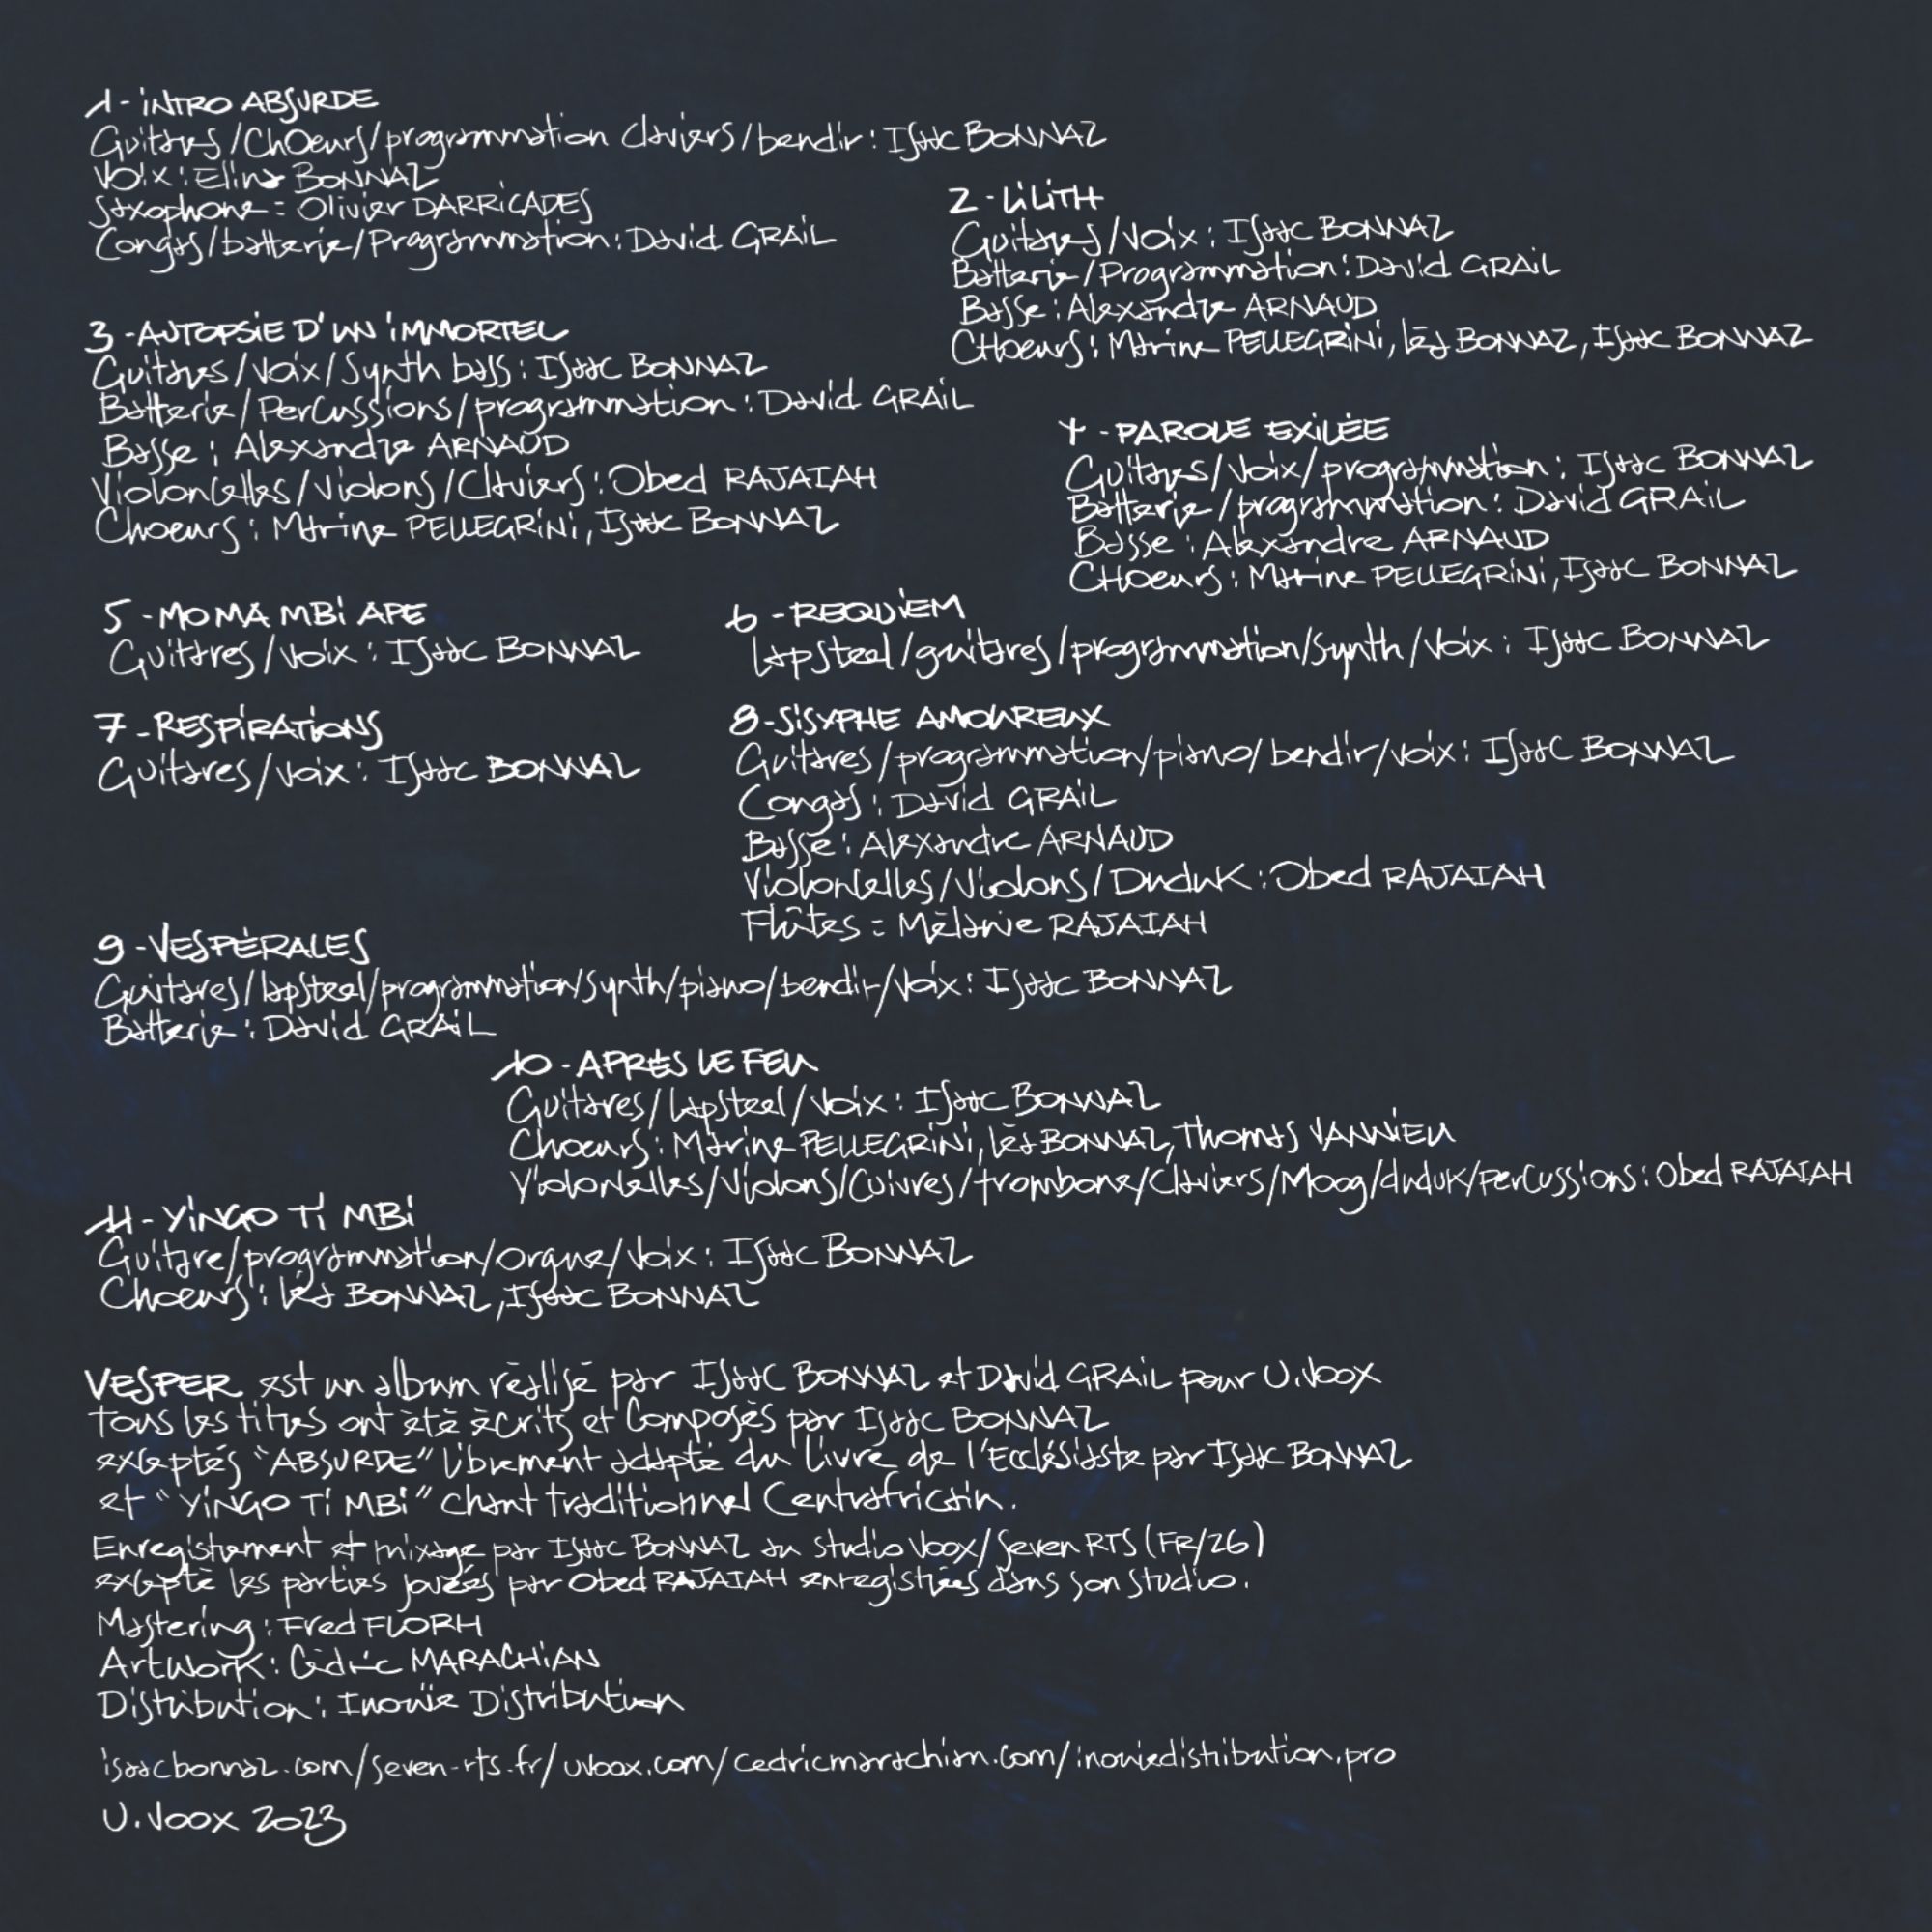 1- INTRO ABSURDE
Guitares/ChOeurs/programmation claviers/bendir: Isaac BONNAZ
Voix: Elina BONNAZ
Saxophone = Olivier DARRICADES
Congas/batterie/Programmation: David GRAIL
2 - LILITH
Guitares/Voix: Isaac BONNAZ
Batterie/Programmation: David GRAIL
Basse: Alexandre ARNAUD
CHoeurs: Marine PELLEGRINI, Léa BONNAZ, Isaac BONNAZ
3 - AUTOPSIE D'UN IMMORTEL
Guitares/Voix/Synth bass: Isaac BONNAZ
Batterie/Percussions/programmation: David GRAIL
Basse: Alexandre ARNAUD
Violoncelles/Violons/Claviers: Obed RAJAIAH
Choeurs: Marine PELLEGRINI, Isaac BONNAZ
4 - PAROLE EXILÉE
Guitares/Voix/programmation: Isaac BONNAZ
Batterie/programmation: David GRAIL
Basse: Alexandre ARNAUD
CHoeurs: Marine PELLEGRINI, Isaac BONNAZ
5 - MOMA MBI APE
Guitares/Voix: Isaac BONNAZ
6 - REQUIEM
Lapsteel/guitares/programmation/synth/Voix: Isaac BONNAZ
7 - RESPIRATIONS
Guitares/Voix: Isaac BONNAZ
8 - SISYPHE AMOUREUX
Guitares/programmation/piano/bendir/voix: Isaac BONNAZ
Congas: David GRAIL
Basse: Alexandre ARNAUD
Violoncelles/Violons/Duduk: Obed RAJAIAH
Flûtes = Mélanie RAJAIAH
9 - VESPÉRALES
Guitares/lapsteel/programmation/synth/piano/bendir/Voix: Isaac BONNAZ
Batterie: David GRAIL
10 - APRÈS LE FEU
Guitares/Lapsteel/Voix: Isaac BONNAZ
Choeurs: Marine PELLEGRINI, Léa BONNAZ, Thomas VANNIEU
Violoncelles/Violons/Cuivres/trombone/Claviers/Moog/duduk/percussions: Obed RAJAIAH
11 - YINGO TI MBI
Guitare/programmation/orgue/Voix: Isaac BONNAZ
Choeurs: Léa BONNAZ, Isaac BONNAZ
VESPER est un album réalisé par Isaac BONNAZ et David GRAIL pour U.Voox
tous les titres ont été écrits et Composés par Isaac BONNAZ
exceptés "ABSURDE" librement adapté du livre de l'Ecclésiaste par Isaac BONNAZ
et "YINGO TI MBI" chant traditionnel Centrafricain.
Enregistrement et mixage par Isaac BONNAZ au studio Voox/Seven RTS (FR/26)
excepté les parties jouées par Obed RAJAIAH enregistrées dans son studio.
Mastering: Fred FLORH
Artwork: Cédric MARACHIAN
Distribution: Inouïe Distribution
isaacbonnaz.com/seven-rts.fr/uvoox.com/cedricmarachian.com/inouiedistribution.pro
U.Voox 2023